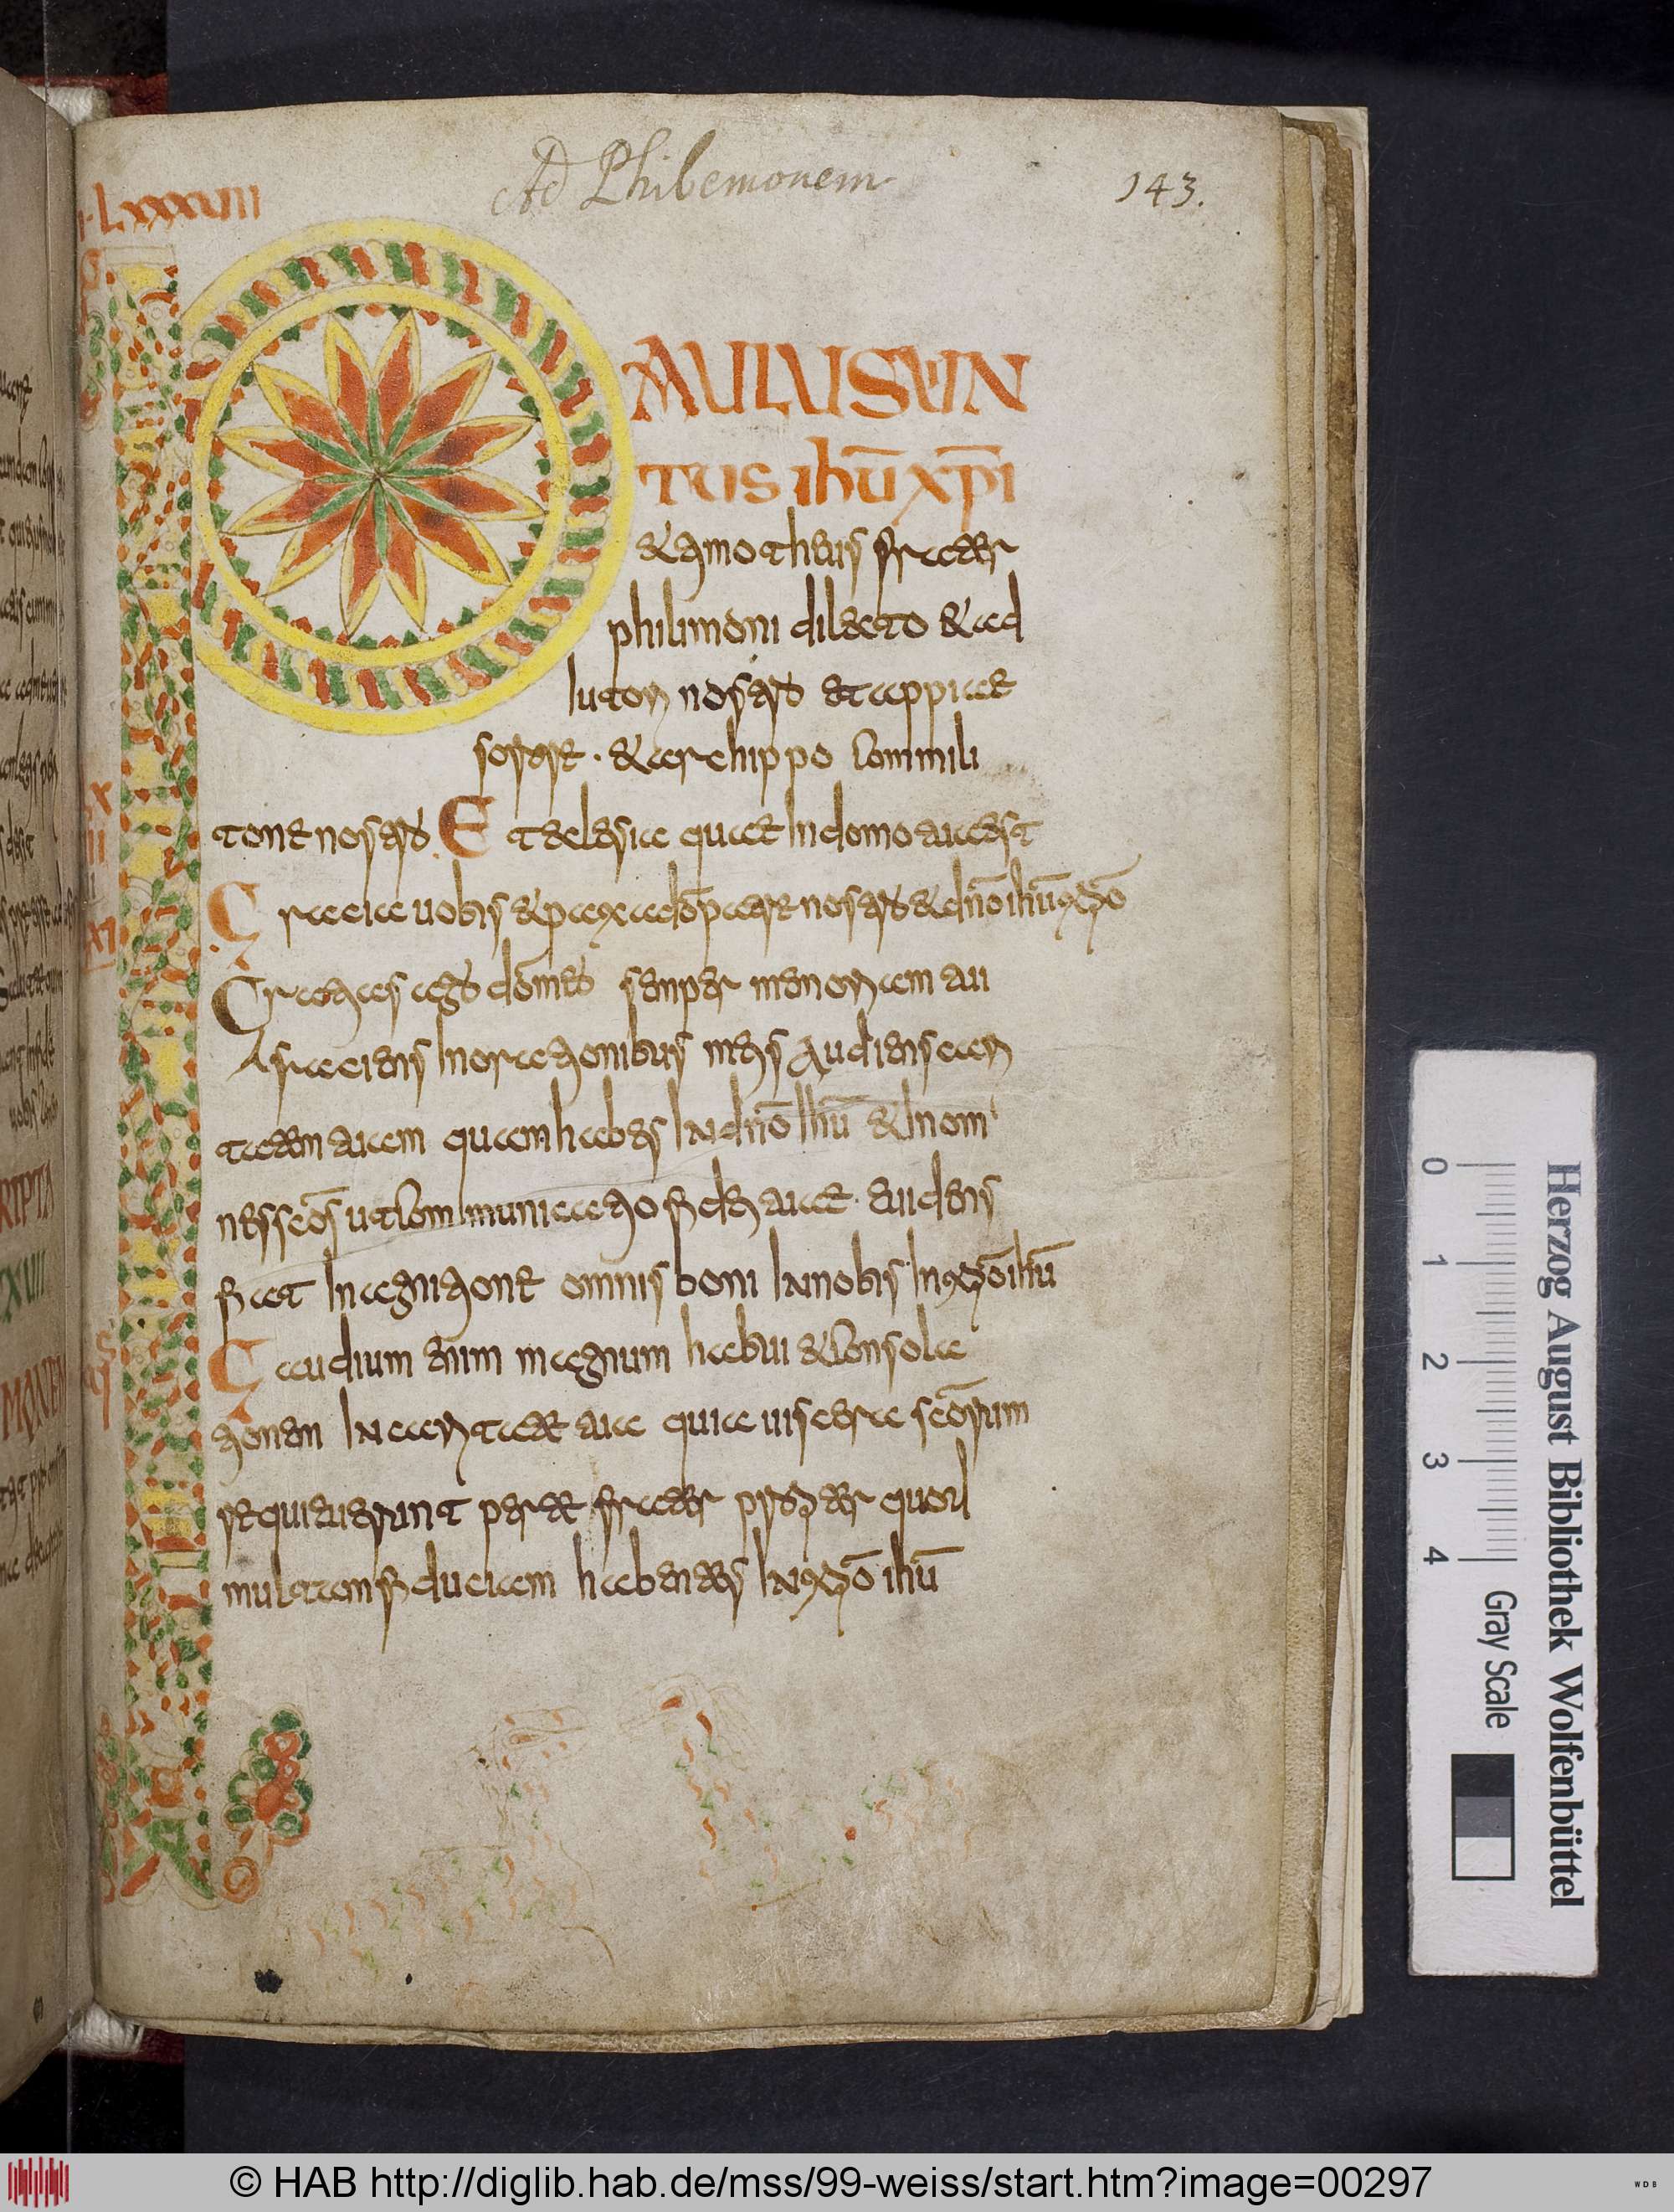 Ad Philemonem
143.
LXXXXVIII
AULUSUIN
TUS ihū xpī
& timotheus frater
philimoni dilecto & ad
iutori nostro et appiae
sorori · & archippo commili
toni nostro Et eclesiae quae in domo tua est
Gracia uobis & pax a dō patre nostro & dnō ihū xpō
Gratias ago dō meo semper memoriam tui
faciens in orationibus meis audiens cari
tatem tuam quam habes in dnō ihū & in om
nes scōs ut communicatio fidei tuae euidens
fiat in agnitione omnis boni in nobis in xpō ihū
Gaudium enim magnum habui & conso la
tionem in caritate tua quia uiscera scōrum
requieuerunt per te frater propter quod
multam fiduciam habentes in xpō ihū
RIPTA
XVII
Herzog August Bibliothek Wolfenbüttel
0 1 2 3 4
Gray Scale
© HAB http://diglib.hab.de/mss/99-weiss/start.htm?image=00297
WDB